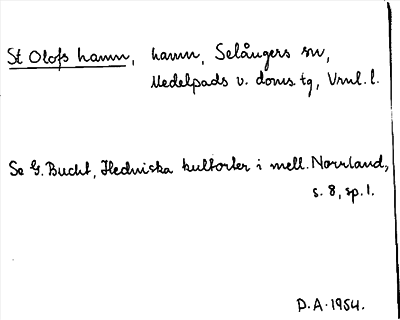 St Olofs hamn, hamn, Selångers sn,
Medelpads v. doms. tg, Vrnl. l.
Se G. Bucht, Hedniska kultorter i mell. Norrland,
s. 8, sp. 1.
D.A. 1954.